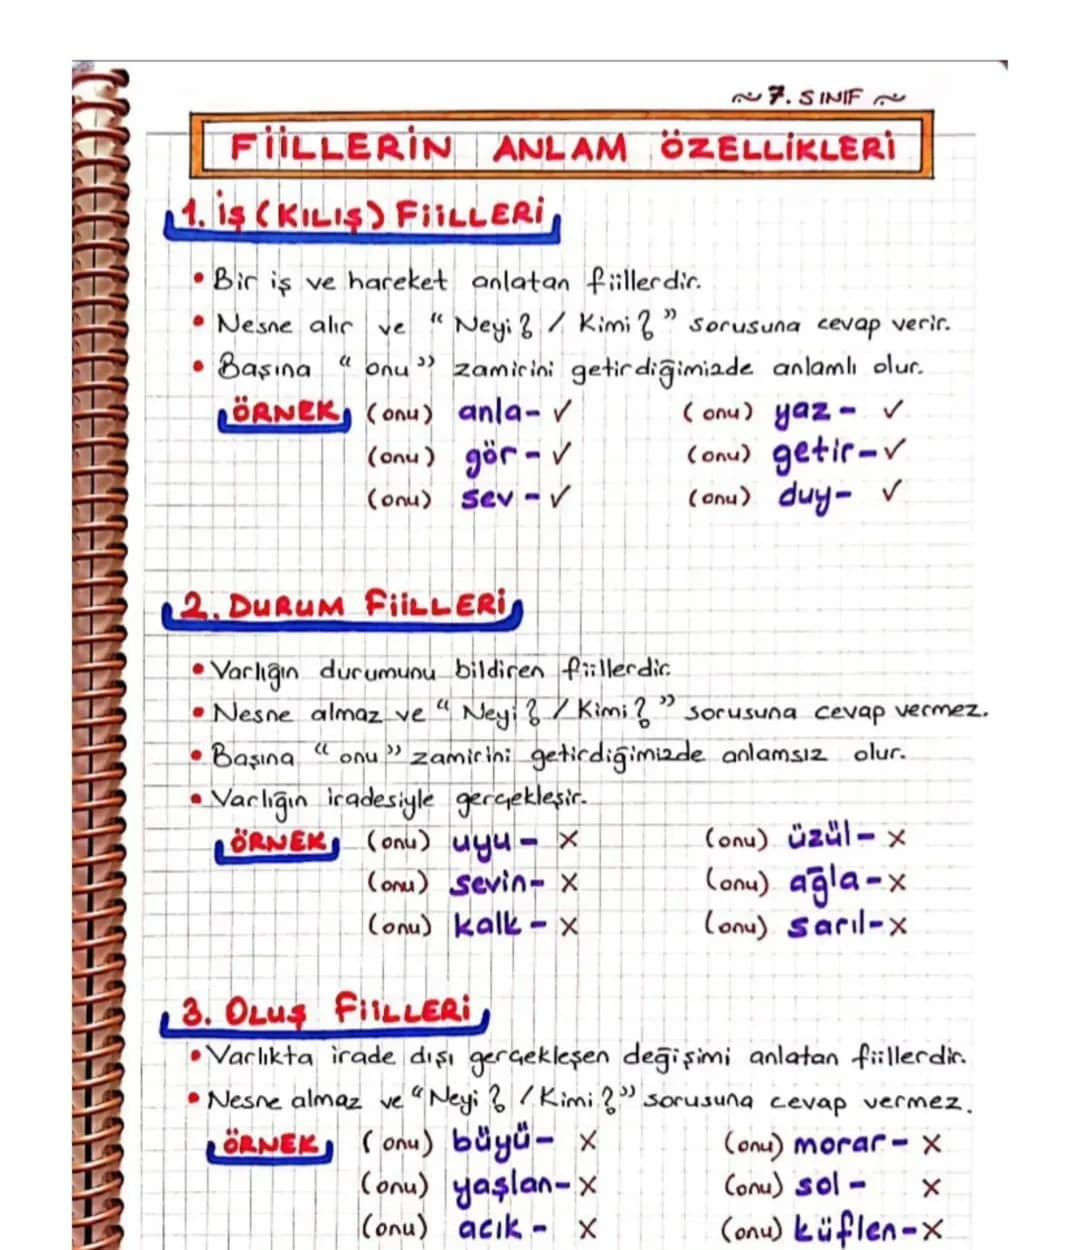 ~ 7. SINIF ~
FİİLLERİN ANLAM ÖZELLİKLERİ
1. İŞ (KILIŞ) FİİLLERİ
• Bir iş ve hareket anlatan fiillerdir.
• Nesne alır ve "Neyi? / Kimi?" sorusuna cevap verir.
• Başına "onu" zamirini getirdiğimizde anlamlı olur.
ÖRNEK (onu) anla- ✓ (onu) yaz- ✓
(onu) gör- ✓ (onu) getir- ✓
(onu) sev- ✓ (onu) duy- ✓
2. DURUM FİİLLERİ
• Varlığın durumunu bildiren fiillerdir.
• Nesne almaz ve "Neyi? / Kimi?" sorusuna cevap vermez.
• Başına "onu" zamirini getirdiğimizde anlamsız olur.
• Varlığın iradesiyle gerçekleşir.
ÖRNEK (onu) uyu- X (onu) üzül- X
(onu) sevin- X (onu) ağla- X
(onu) kalk- X (onu) sarıl- X
3. OLUŞ FİİLLERİ
• Varlıkta irade dışı gerçekleşen değişimi anlatan fiillerdir.
• Nesne almaz ve "Neyi? / Kimi?" sorusuna cevap vermez.
ÖRNEK (onu) büyü- X (onu) morar- X
(onu) yaşlan- X (onu) sol- X
(onu) acık- X (onu) küflen- X